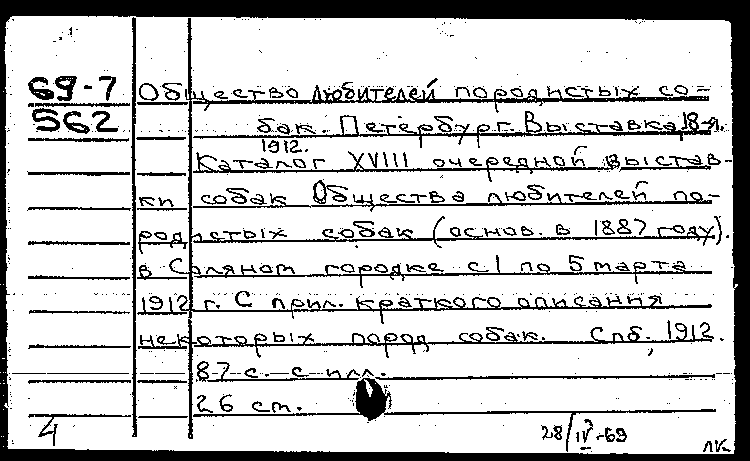 69-7
562
Общество любителей породистых со-
бак. Петербург. Выставка, 18-я.
1912.
Каталог XVIII очередной выстав-
ки собак Общества любителей по-
родистых собак (основ. в 1887 году).
в Соляном городке с 1 по 5 марта
1912 г. С прил. краткого описания
некоторых пород собак. Спб., 1912.
87 с. с илл.
26 см.
4
28/IV-69
ЛК